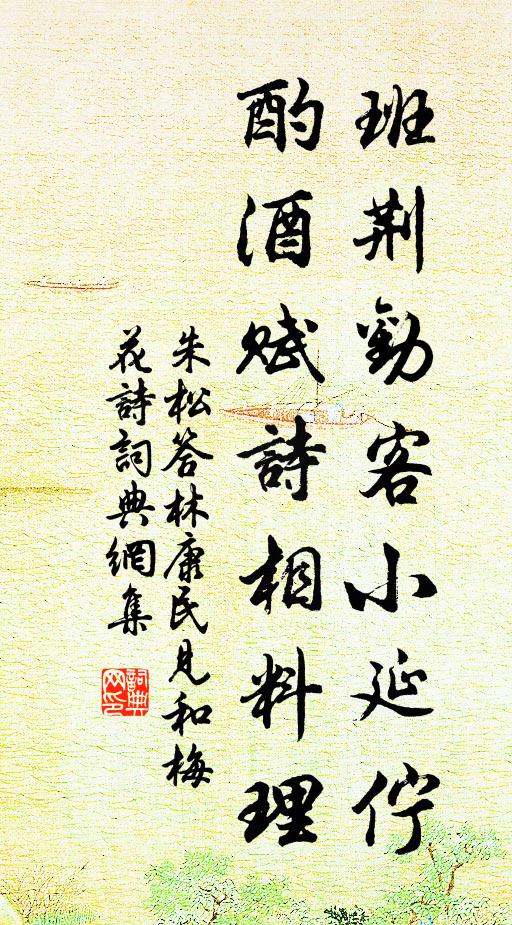 班荆勸客小延佇
酌酒賦詩相料理
朱松答林康民見和梅
花詩詞典網集
詞典網印